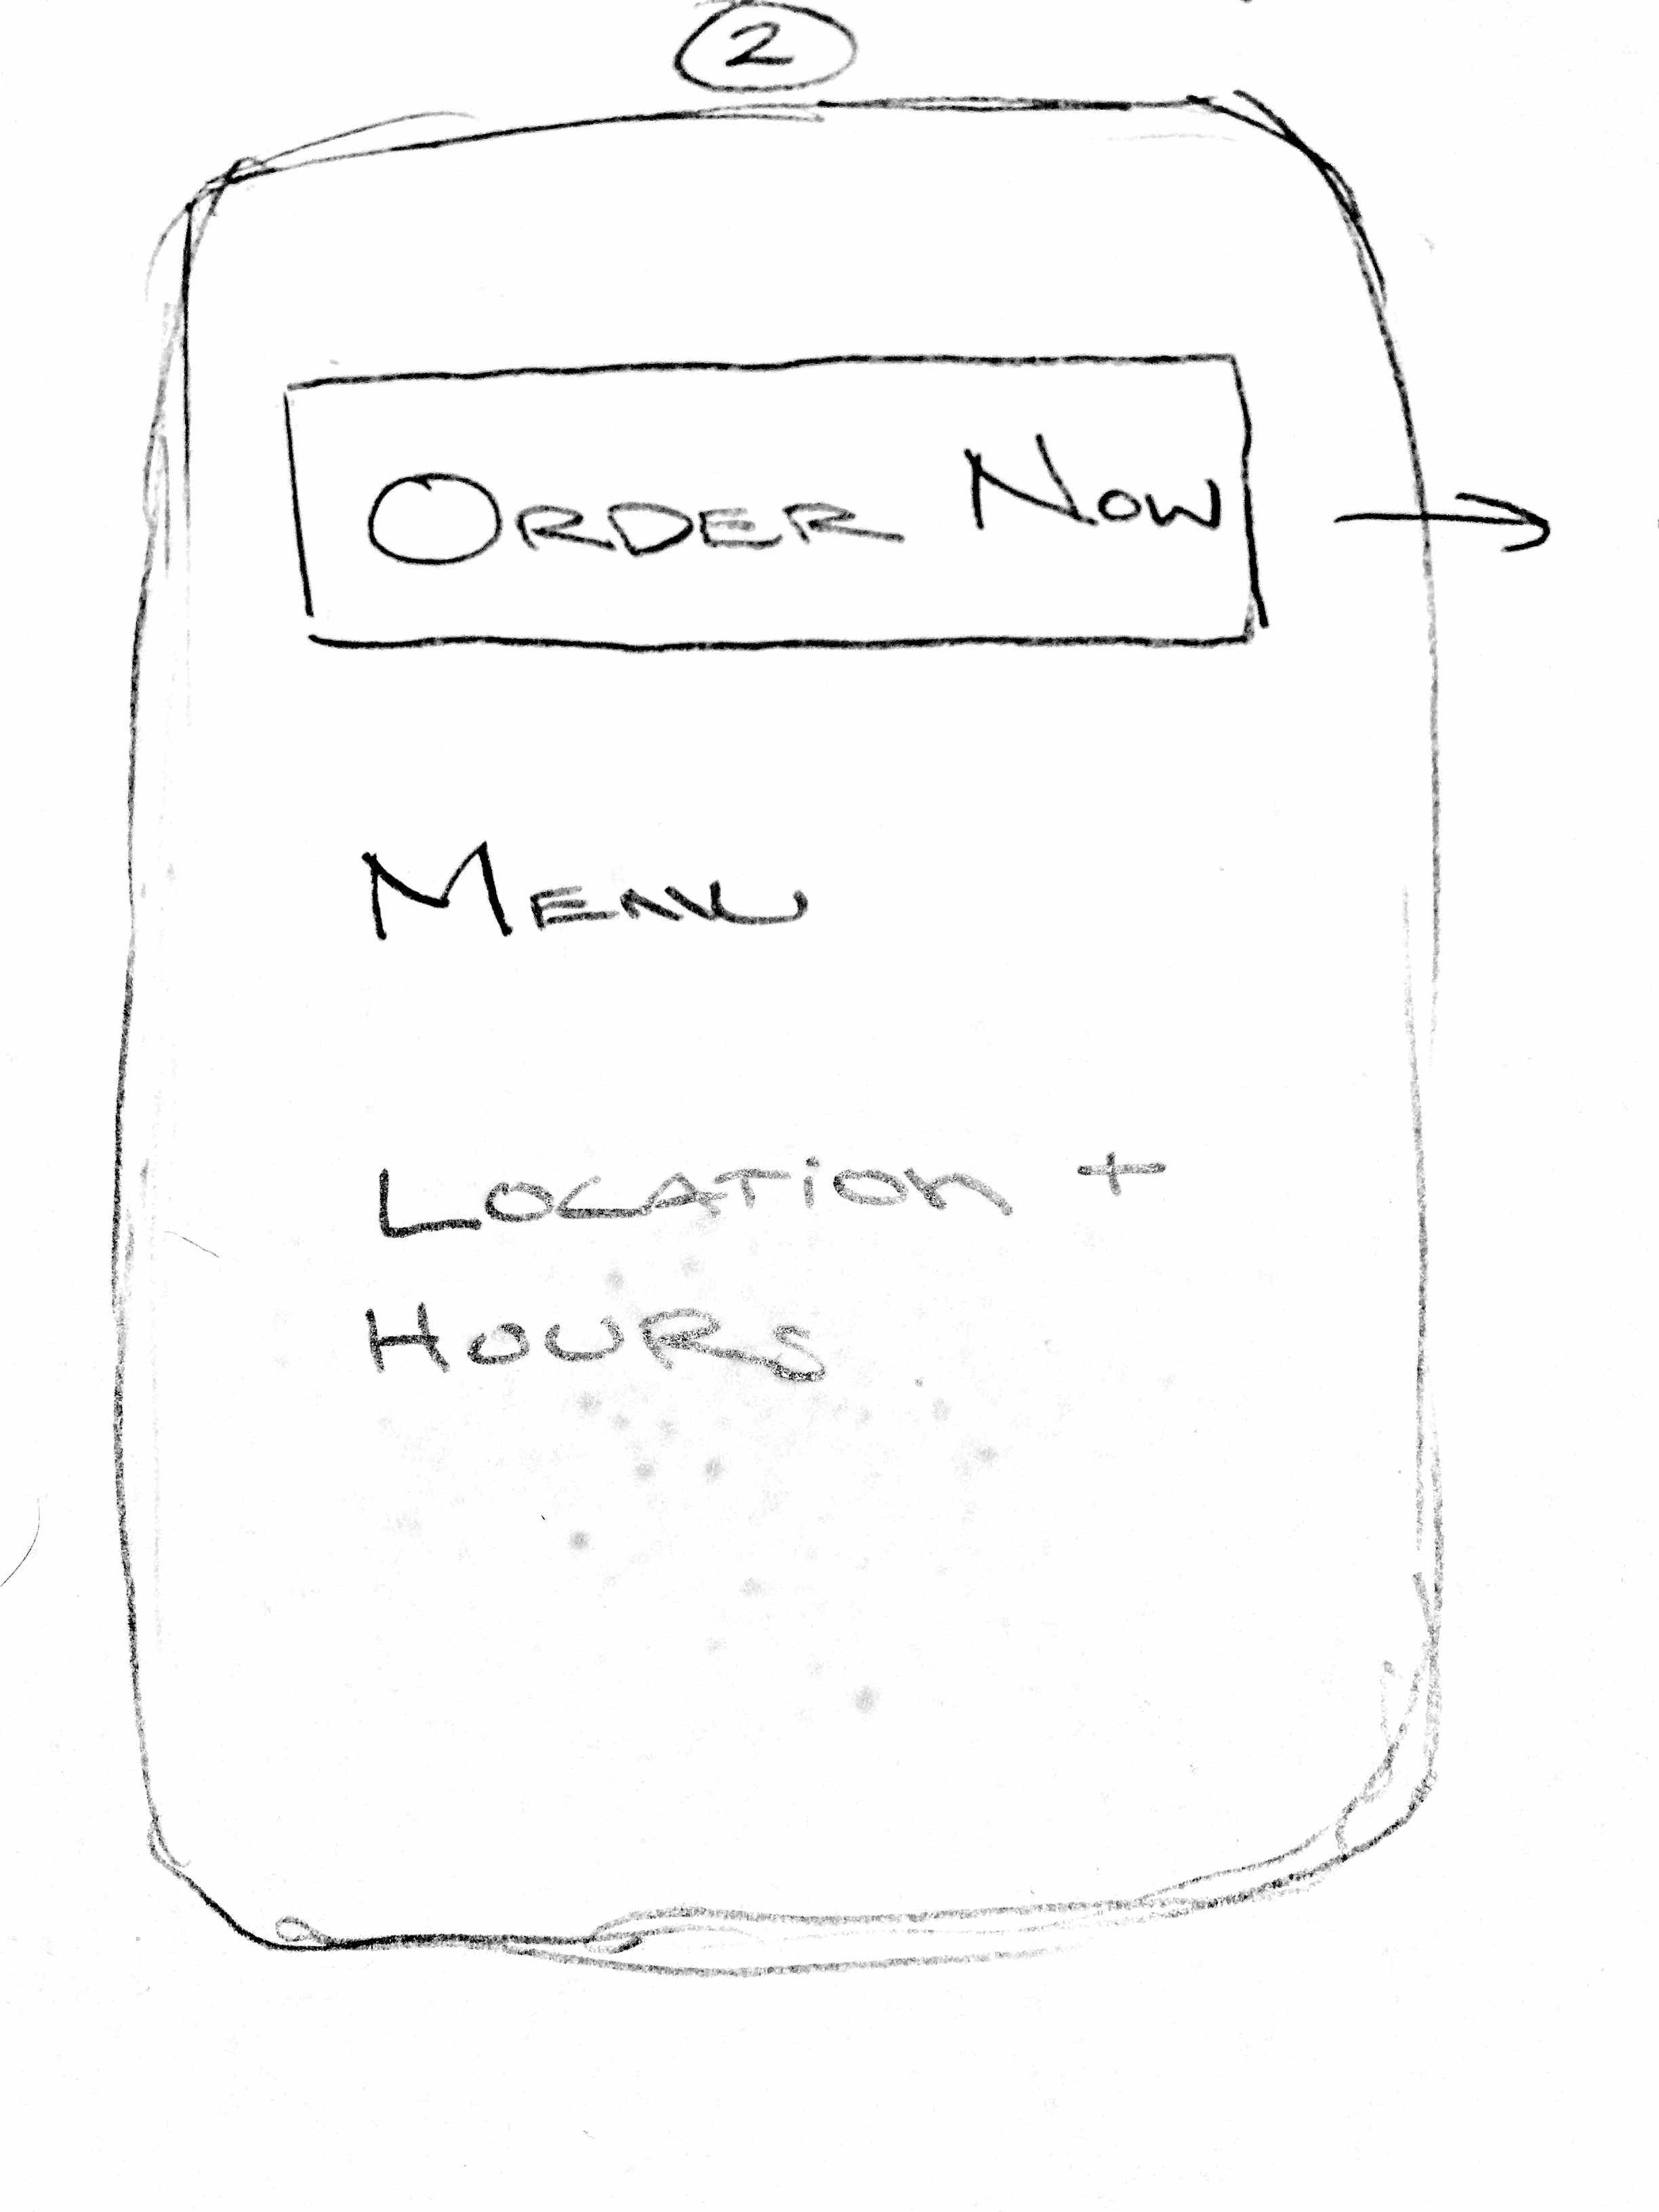 2
ORDER NOW
MENU
LOCATION +
HOURS